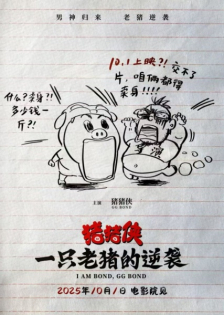 男神归来 老猪逆袭
10.1上映?! 交不了
片，咱俩都得
卖身!!!!
什么?卖身?!
多少钱一
斤?!
主演 猪猪侠
猪猪侠
一只老猪的逆袭
I AM BOND, GG BOND
2025年10月1日 电影院见